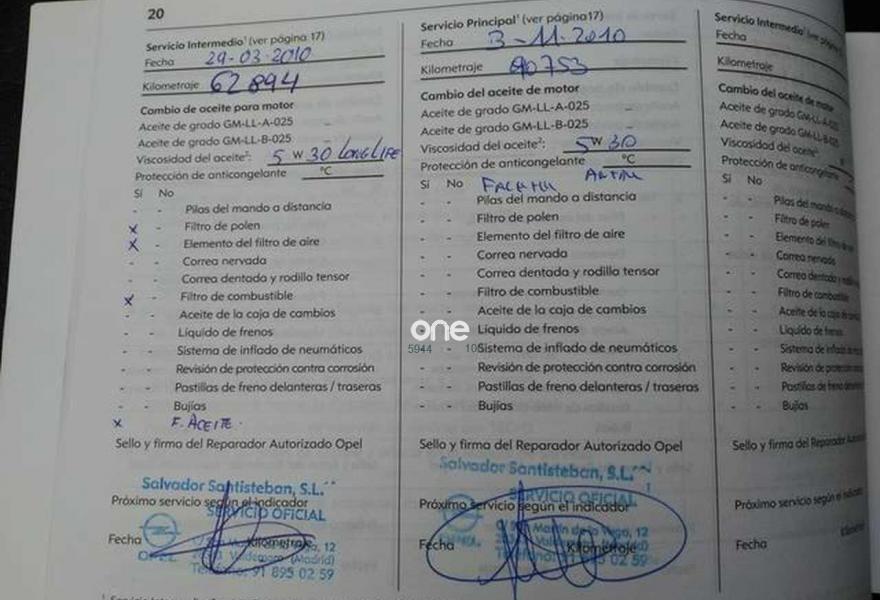 20
Servicio Intermedio¹ (ver página 17)
Fecha 29-03-2010
Kilometraje 62894
Cambio de aceite para motor
Aceite de grado GM-LL-A-025 -
Aceite de grado GM-LL-B-025 -
Viscosidad del aceite²: 5 W 30 LONGLIFE
Protección de anticongelante °C
Sí No
- - Pilas del mando a distancia
x - Filtro de polen
x - Elemento del filtro de aire
- - Correa nervada
- - Correa dentada y rodillo tensor
x - Filtro de combustible
- - Aceite de la caja de cambios
- - Líquido de frenos
- - Sistema de inflado de neumáticos
- - Revisión de protección contra corrosión
- - Pastillas de freno delanteras / traseras
- - Bujías
x F. ACEITE.
Sello y firma del Reparador Autorizado Opel
Salvador Santisteban, S.L.
Próximo servicio según el indicador
SERVICIO OFICIAL
Fecha Kilometraje
12
OPEL Valdemoro (Madrid)
Teléfono: 91 895 02 59
Servicio Principal¹ (ver página17)
Fecha 3-11-2010
Kilometraje 90753
Cambio del aceite de motor
Aceite de grado GM-LL-A-025 -
Aceite de grado GM-LL-B-025 -
Viscosidad del aceite²: 5W30
Protección de anticongelante °C
Sí No
- - Pilas del mando a distancia
- - Filtro de polen
- - Elemento del filtro de aire
- - Correa nervada
- - Correa dentada y rodillo tensor
- - Filtro de combustible
- - Aceite de la caja de cambios
- - Líquido de frenos
- - Sistema de inflado de neumáticos
- - Revisión de protección contra corrosión
- - Pastillas de freno delanteras / traseras
- - Bujías
Sello y firma del Reparador Autorizado Opel
Salvador Santisteban, S.L.
SERVICIO OFICIAL
Próximo servicio según el indicador
12
Fecha Kilometraje
02 59
one
5944 10
Servicio Intermedio¹ (ver página
Fecha
Kilometraje
Cambio del aceite de motor
Aceite de grado GM-LL-A-025
Aceite de grado GM-LL-B-025
Viscosidad del aceite²:
Protección de anticongelante
Sí No
- - Pilas del mando a distancia
- - Filtro de polen
- - Elemento del filtro de aire
- - Correa nervada
- - Correa dentada y rodillo
- - Filtro de combustible
- - Aceite de la caja de
- - Líquido de frenos
- - Sistema de inflado de
- - Revisión de protección
- - Pastillas de freno
- - Bujías
Sello y firma del Reparador
Próximo servicio según el
Fecha